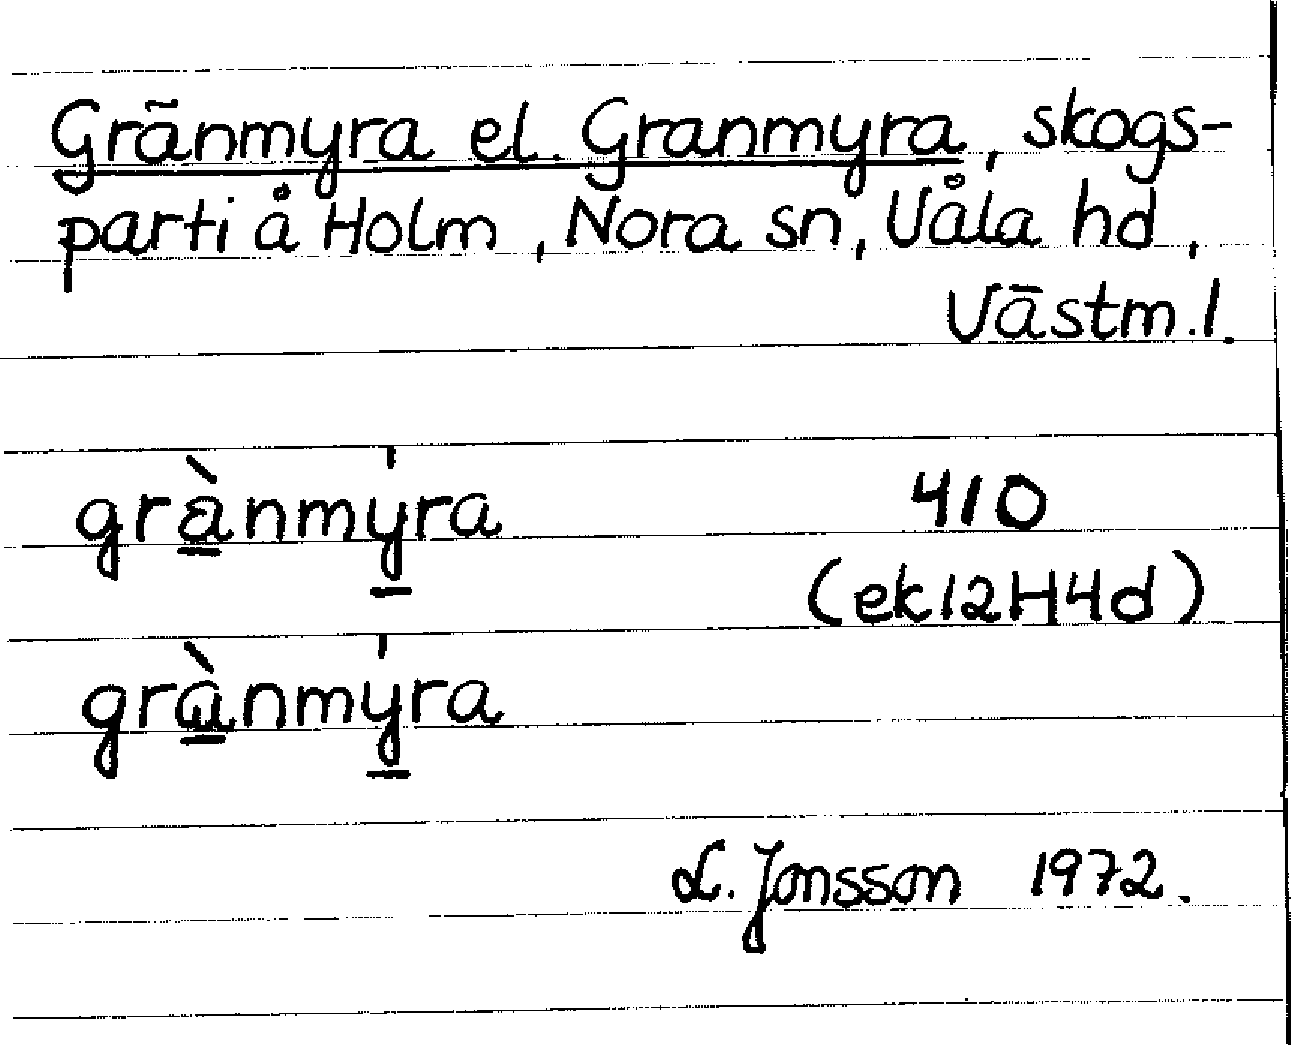 Gränmyra el. Granmyra, skogs-
parti å Holm, Nora sn, Våla hd,
Västm.l.
grànmýra 410
(ek12H4d)
grànmýra
L. Jonsson 1972.